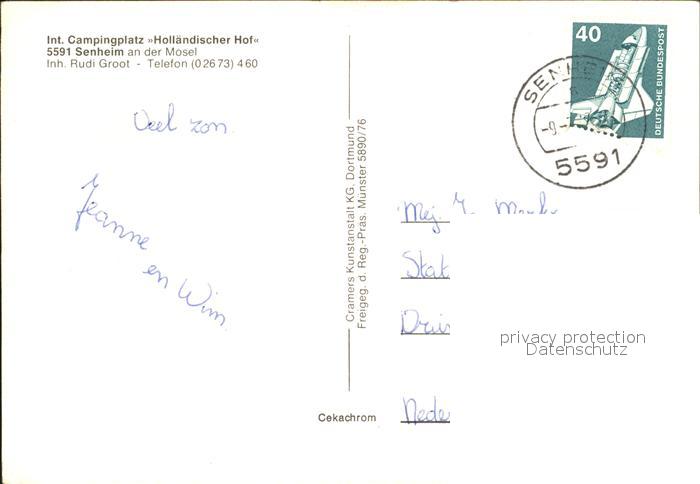 Int. Campingplatz »Holländischer Hof«
5591 Senheim an der Mosel
Inh. Rudi Groot - Telefon (0 26 73) 4 60
Veel zon
Jeanne
en Wim
Cramers Kunstanstalt KG. Dortmund
Freigeg. d. Reg.-Präs. Münster 5890/76
Cekachrom
40
DEUTSCHE BUNDESPOST
SENHE
-9.-
5591
Mej.
Stat
Nede
privacy protection
Datenschutz